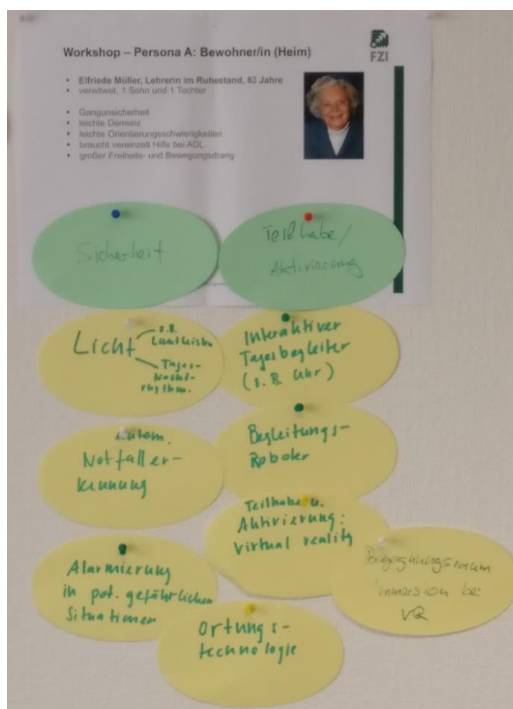 Workshop – Persona A: Bewohner/in (Heim)
FZI
• Elfriede Müller, Lehrerin im Ruhestand, 83 Jahre
• verwitwet, 1 Sohn und 1 Tochter
• Gangunsicherheit
• leichte Demenz
• leichte Orientierungsschwierigkeiten
• braucht vereinzelt Hilfe bei ADL
• großer Freiheits- und Bewegungsdrang
Sicherheit
Teilhabe/
Aktivierung
Licht
z.B.
Tages-
Nacht-
rhythm.
Interaktiver
Tagesbegleiter
(z.B. Uhr)
Autom.
Notfaller-
kennung
Begleitungs-
Roboter
Teilhabe u.
Aktivierung:
Virtual reality
Alarmierung
in pot. gefährlichen
Situationen
Begegnungsraum
Immersion bei
VR
Ortungs-
technologie